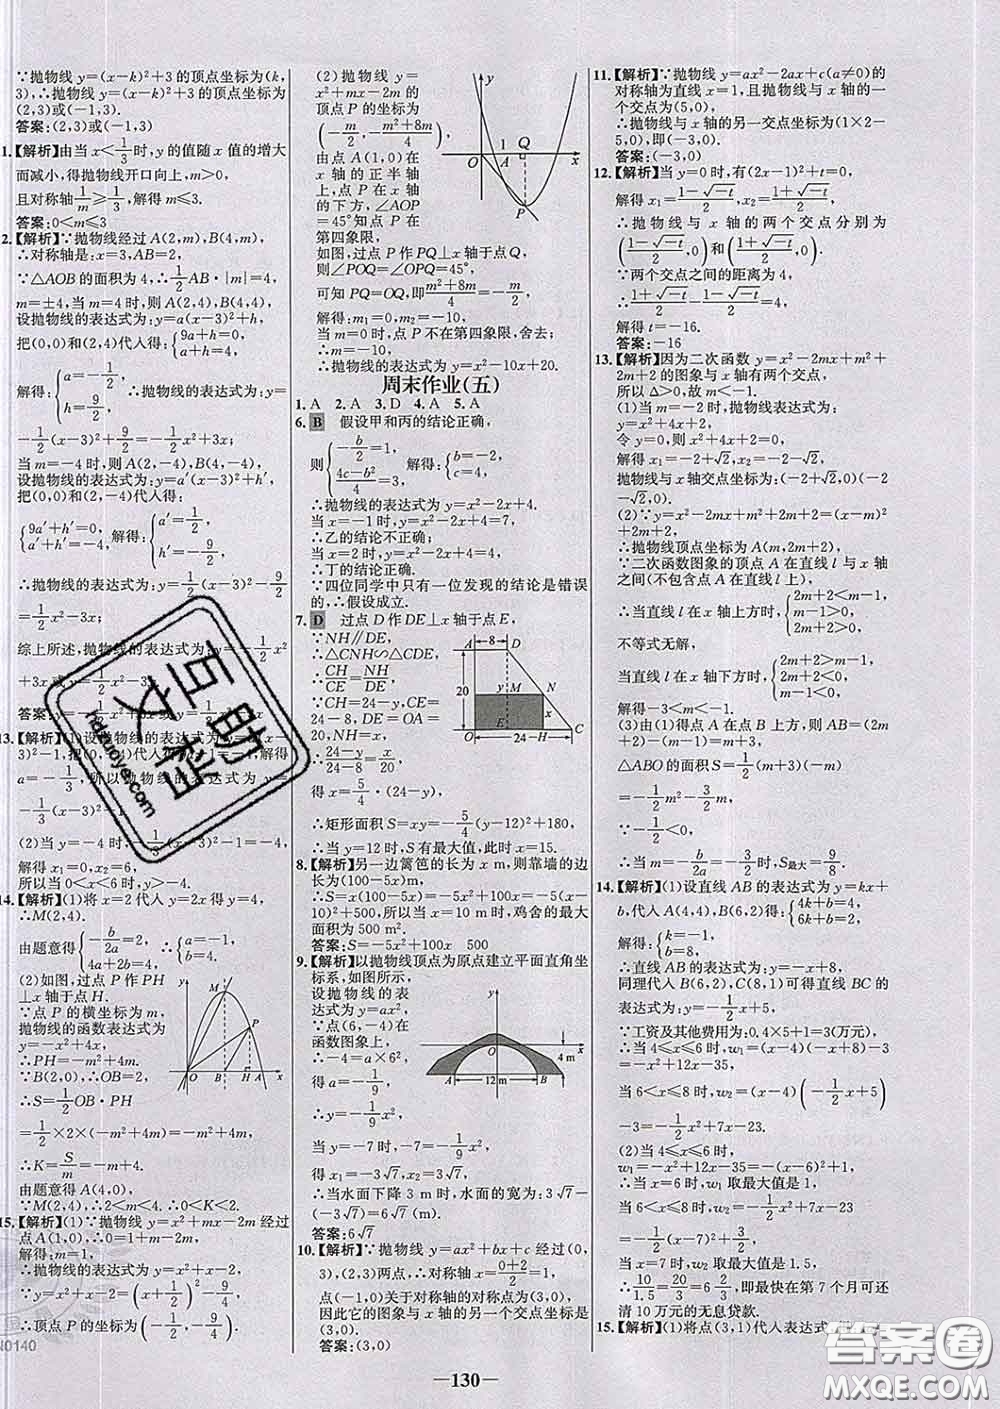 ∵抛物线 y=(x-k)²+3的顶点坐标为(k,
3),∴抛物线 y=(x-k)²+3的顶点坐标为
(2,3)或(-1,3).
答案:(2,3)或(-1,3)
1.【解析】由当 x<1/3时,y 的值随 x 值的增大
而减小,得抛物线开口向上,m>0,
且对称轴1/m≥1/3,解得 m≤3.
答案:0<m≤3
2.【解析】∵抛物线经过 A(2,m),B(4,m),
∴对称轴是:x=3,AB=2,
∵△AOB 的面积为 4,∴1/2AB·|m|=4,
m=±4,当 m=4时,则 A(2,4),B(4,4),
设抛物线的表达式为:y=a(x-3)²+h,
把(0,0)和(2,4)代入得:{9a+h=0, a+h=4,
解得:{a=-1/2, h=9/2, ∴抛物线的表达式为:y=
-1/2(x-3)²+9/2=-1/2x²+3x;
当 m=-4时,则 A(2,-4),B(4,-4),
设抛物线的表达式为:y=a′(x-3)²+h′,
把(0,0)和(2,-4)代入得:
{9a′+h′=0, a′+h′=-4, 解得:{a′=1/2, h′=-9/2,
∴抛物线的表达式为:y=1/2(x-3)²-9/2=
1/2x²-3x,
综上所述,抛物线的表达式为:y=-1/2x²
+3x 或
答案:y=
13.【解析】(1)设抛物线的表达式为:y=a(x-
3)²-1,把(0,
a=-1/3,所以抛物线的表达式为 y=
-1/3(x-3)²-1.
(2)当 y=-4时,-1/3(x-3)²-1=-4,
解得 x₁=0,x₂=6,
所以当 0<x<6时,y>-4.
14.【解析】(1)将 x=2代入 y=2x 得 y=4,
∴M(2,4),
由题意得{-b/2a=2, 4a+2b=4, ∴{a=-1, b=4.
(2)如图,过点 P 作 PH
⊥x 轴于点 H.
∵点 P 的横坐标为 m,
抛物线的函数表达式为
y=-x²+4x,
∴PH=-m²+4m,
∵B(2,0),∴OB=2,
∴S=1/2OB·PH
=1/2×2×(-m²+4m)=-m²+4m,
∴K=S/m=-m+4,
由题意得 A(4,0),
∵M(2,4),∴2<m<4,∴0<K<2.
y
M
P
O
B
H
A
x
15.【解析】(1)∵抛物线 y=x²+mx-2m 经过
点 A(1,0),∴0=1+m-2m,
解得:m=1,
∴抛物线的表达式为 y=x²+x-2,
∵y=x²+x-2=(x+1/2)²-9/4,
∴顶点 P 的坐标为(-1/2,-9/4).
N0140
(2)抛物线 y=
x²+mx-2m 的
顶点 P 的坐标为
(-m/2,-(m²+8m)/4),
由点 A(1,0)在
x 轴的正半轴
上,点 P 在 x 轴
的下方,∠AOP
=45°知点 P 在
第四象限,
如图,过点 P 作 PQ⊥x 轴于点 Q,
则∠POQ=∠OPQ=45°,
可知 PQ=OQ,即(m²+8m)/4=-m/2,
解得:m₁=0,m₂=-10,
当 m=0时,点 P 不在第四象限,舍去;
∴m=-10,
∴抛物线的表达式为 y=x²-10x+20.
y
1
Q
O
A
x
P
周末作业(五)
1.A 2.A 3.D 4.A 5.A
6.B 假设甲和丙的结论正确,
则{-b/2=1, (4c-b²)/4=3, 解得:{b=-2, c=4,
∴抛物线的表达式为 y=x²-2x+4.
当 x=-1时,y=x²-2x+4=7,
∴乙的结论不正确;
当 x=2时,y=x²-2x+4=4,
∴丁的结论正确.
∵四位同学中只有一位发现的结论是错误
的,∴假设成立.
7.D 过点 D 作 DE⊥x 轴于点 E,
∵NH∥DE,
∴△CNH∽△CDE,
∴CH/CE=NH/DE,
∵CH=24-y,CE=
24-8,DE=OA=
20,NH=x,
∴(24-y)/(24-8)=x/20,
得 x=5/4·(24-y),
∴矩形面积 S=xy=-5/4(y-12)²+180,
∴当 y=12时,S 有最大值,此时 x=15.
A
8
D
20
y
M
N
x
E
24
H
C
8.【解析】另一边篱笆的长为 x m,则靠墙的边
长为(100-5x)m,
∴S=x(100-5x)=-5x²+100x=-5(x-
10)²+500,所以当 x=10 m 时,鸡舍的最大
面积为 500 m².
答案:S=-5x²+100x 500
9.【解析】以抛物线顶点为原点建立平面直角坐
标系,如图所示,
设抛物线的表
达式为 y=ax²,
∵点(6,-4)在
函数图象上,
∴-4=a×6²,
得 a=-1/9,
∴y=-1/9x²,
当 y=-7时,-7=-1/9x²,
得 x₁=-3√7,x₂=3√7,
∴当水面下降 3 m 时,水面的宽为:3√7-
(-3√7)=6√7(m).
答案:6√7
y
x
4 m
A
12 m
B
10.【解析】∵抛物线 y=ax²+bx+c 经过(0,
3),(2,3)两点,∴对称轴 x=(0+2)/2=1,
点(-1,0)关于对称轴的对称点为(3,0),
因此它的图象与 x 轴的另一个交点坐标是
(3,0).
答案:(3,0)
11.【解析】∵抛物线 y=ax²-2ax+c(a≠0)的
对称轴为直线 x=1,且抛物线与 x 轴的一
个交点为(5,0),
∴抛物线与 x 轴的另一交点坐标为(1×2-
5,0),即(-3,0).
答案:(-3,0)
12.【解析】当 y=0时,有(2x-1)²+t=0,
解得 x₁=(1-√-t)/2,x₂=(1+√-t)/2,
∴抛物线与 x 轴的两个交点分别为
((1-√-t)/2,0)和((1+√-t)/2,0).
∵两个交点之间的距离为 4,
∴(1+√-t)/2-(1-√-t)/2=4,
解得 t=-16.
答案:-16
13.【解析】因为二次函数 y=x²-2mx+m²+
2m+2的图象与 x 轴有两个交点,
所以 Δ>0,故 m<-1.
(1)当 m=-2时,抛物线的表达式为
y=x²+4x+2,
令 y=0,得 x²+4x+2=0,
解得 x₁=-2+√2,x₂=-2-√2,
抛物线与 x 轴交点坐标为:(-2+√2,0),
(-2-√2,0).
(2)∵y=x²-2mx+m²+2m+2=(x-m)²
+2m+2,
∴抛物线顶点坐标为 A(m,2m+2),
∵二次函数图象的顶点 A 在直线 l 与 x 轴
之间(不包含点 A 在直线 l 上),
∴当直线 l 在 x 轴上方时,{2m+2<m-1, m-1>0, m<-1,
不等式无解,
当直线 l 在 x 轴下方时,{2m+2>m-1, 2m+2<0, m<-1,
解得-3<m<-1.
(3)由(1)得点 A 在点 B 上方,则 AB=(2m
+2)-(m-1)=m+3,
△ABO 的面积 S=1/2(m+3)(-m)
=-1/2m²-3/2m,
∵-1/2<0,
∴当 m=-b/2a=-3/2时,S最大=9/8.
14.【解析】(1)设直线 AB 的表达式为 y=kx+
b,代入 A(4,4),B(6,2)得:{4k+b=4, 6k+b=2,
解得:{k=-1, b=8,
∴直线 AB 的表达式为:y=-x+8,
同理代入 B(6,2),C(8,1)可得直线 BC 的
表达式为:y=-1/2x+5,
∵工资及其他费用为:0.4×5+1=3(万元),
∴当 4≤x≤6时,w₁=(x-4)(-x+8)-3
=-x²+12x-35,
当 6<x≤8时,w₂=(x-4)(-1/2x+5)
-3=-1/2x²+7x-23.
(2)当 4≤x≤6时,
w₁=-x²+12x-35=-(x-6)²+1,
∴当 x=6时,w₁取最大值是 1,
当 6<x≤8时,w₂=-1/2x²+7x-23
=-1/2(x-7)²+3/2,
当 x=7时,w₂取最大值是 1.5,
∴10/1.5=20/3=6 2/3,即最快在第 7 个月可还
清 10 万元的无息贷款.
15.【解析】(1)将点(3,1)代入表达式,
—130—
互助文档
hdzuoye.com
答案圈
MXQE.COM